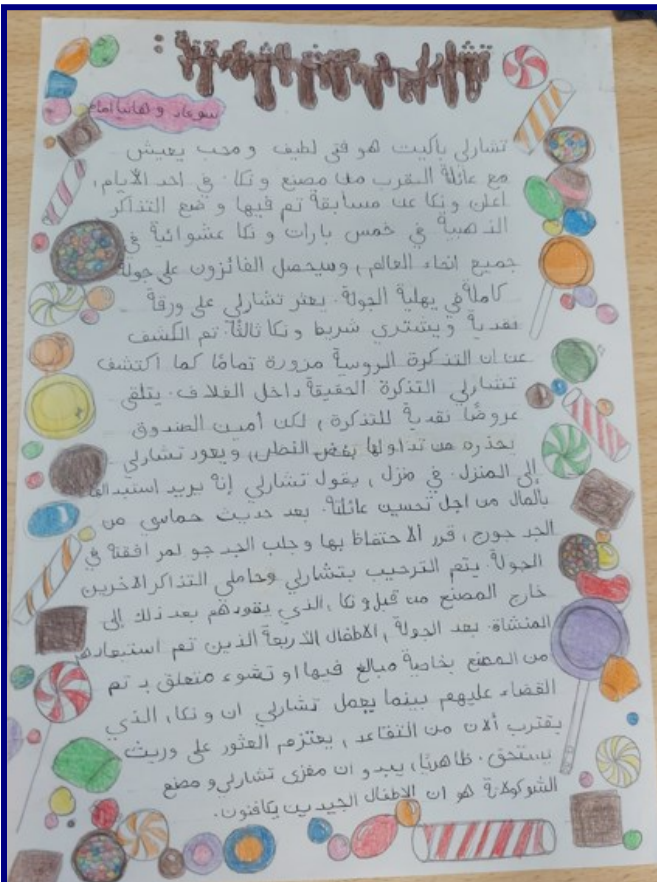 تشارلي ومصنع الشوكولاتة
سوعاد و هانيا امام
تشارلي باكيت هو فتى لطيف و محب يعيش
مع عائلة القرب من مصنع ونكا. في احد الأيام،
اعلن ونكا عن مسابقة تم فيها وضع التذاكر
الذهبية في خمس بارات ونكا عشوائية في
جميع انحاء العالم، وسيحصل الفائزون على جولة
كاملة في نهاية الجولة. يعثر تشارلي على ورقة
نقدية ويشتري شريط ونكا ثالثًا. تم الكشف
عن ان التذكرة الروسية مزورة تمامًا كما اكتشف
تشارلي التذكرة الحقيقة داخل الغلاف. يتلقى
عروضًا نقدية للتذكرة، لكن أمين الصندوق
يحذره من تداولها بغض النظر، ويعود تشارلي
إلى المنزل. في منزل، يقول تشارلي إنه يريد استبدالها
بالمال من اجل تحسين عائلته. بعد حديث حماسي من
الجد جورج، قرر ألاحتفاظ بها وجلب الجد جو لمرافقته في
الجولة. يتم الترحيب بتشارلي وحاملي التذاكر الاخرين
خارج المصنع من قبل ونكا، الذي يقودهم بعد ذلك إلى
المنشاة. بعد الجولة، الاطفال الاربعة الذين تم استبعادهم
من المصنع بخاصية مبالغ فيها او تشوء متعلق بـ تم
القضاء عليهم بينما يعمل تشارلي ان ونكا، الذي
يقترب ألان من التقاعد، يعتزم العثور على وريث
يستحق. ظاهريًا، يبدو ان مغزى تشارلي و مصنع
الشوكولاتة هو ان الاطفال الجيدين يكافئون.